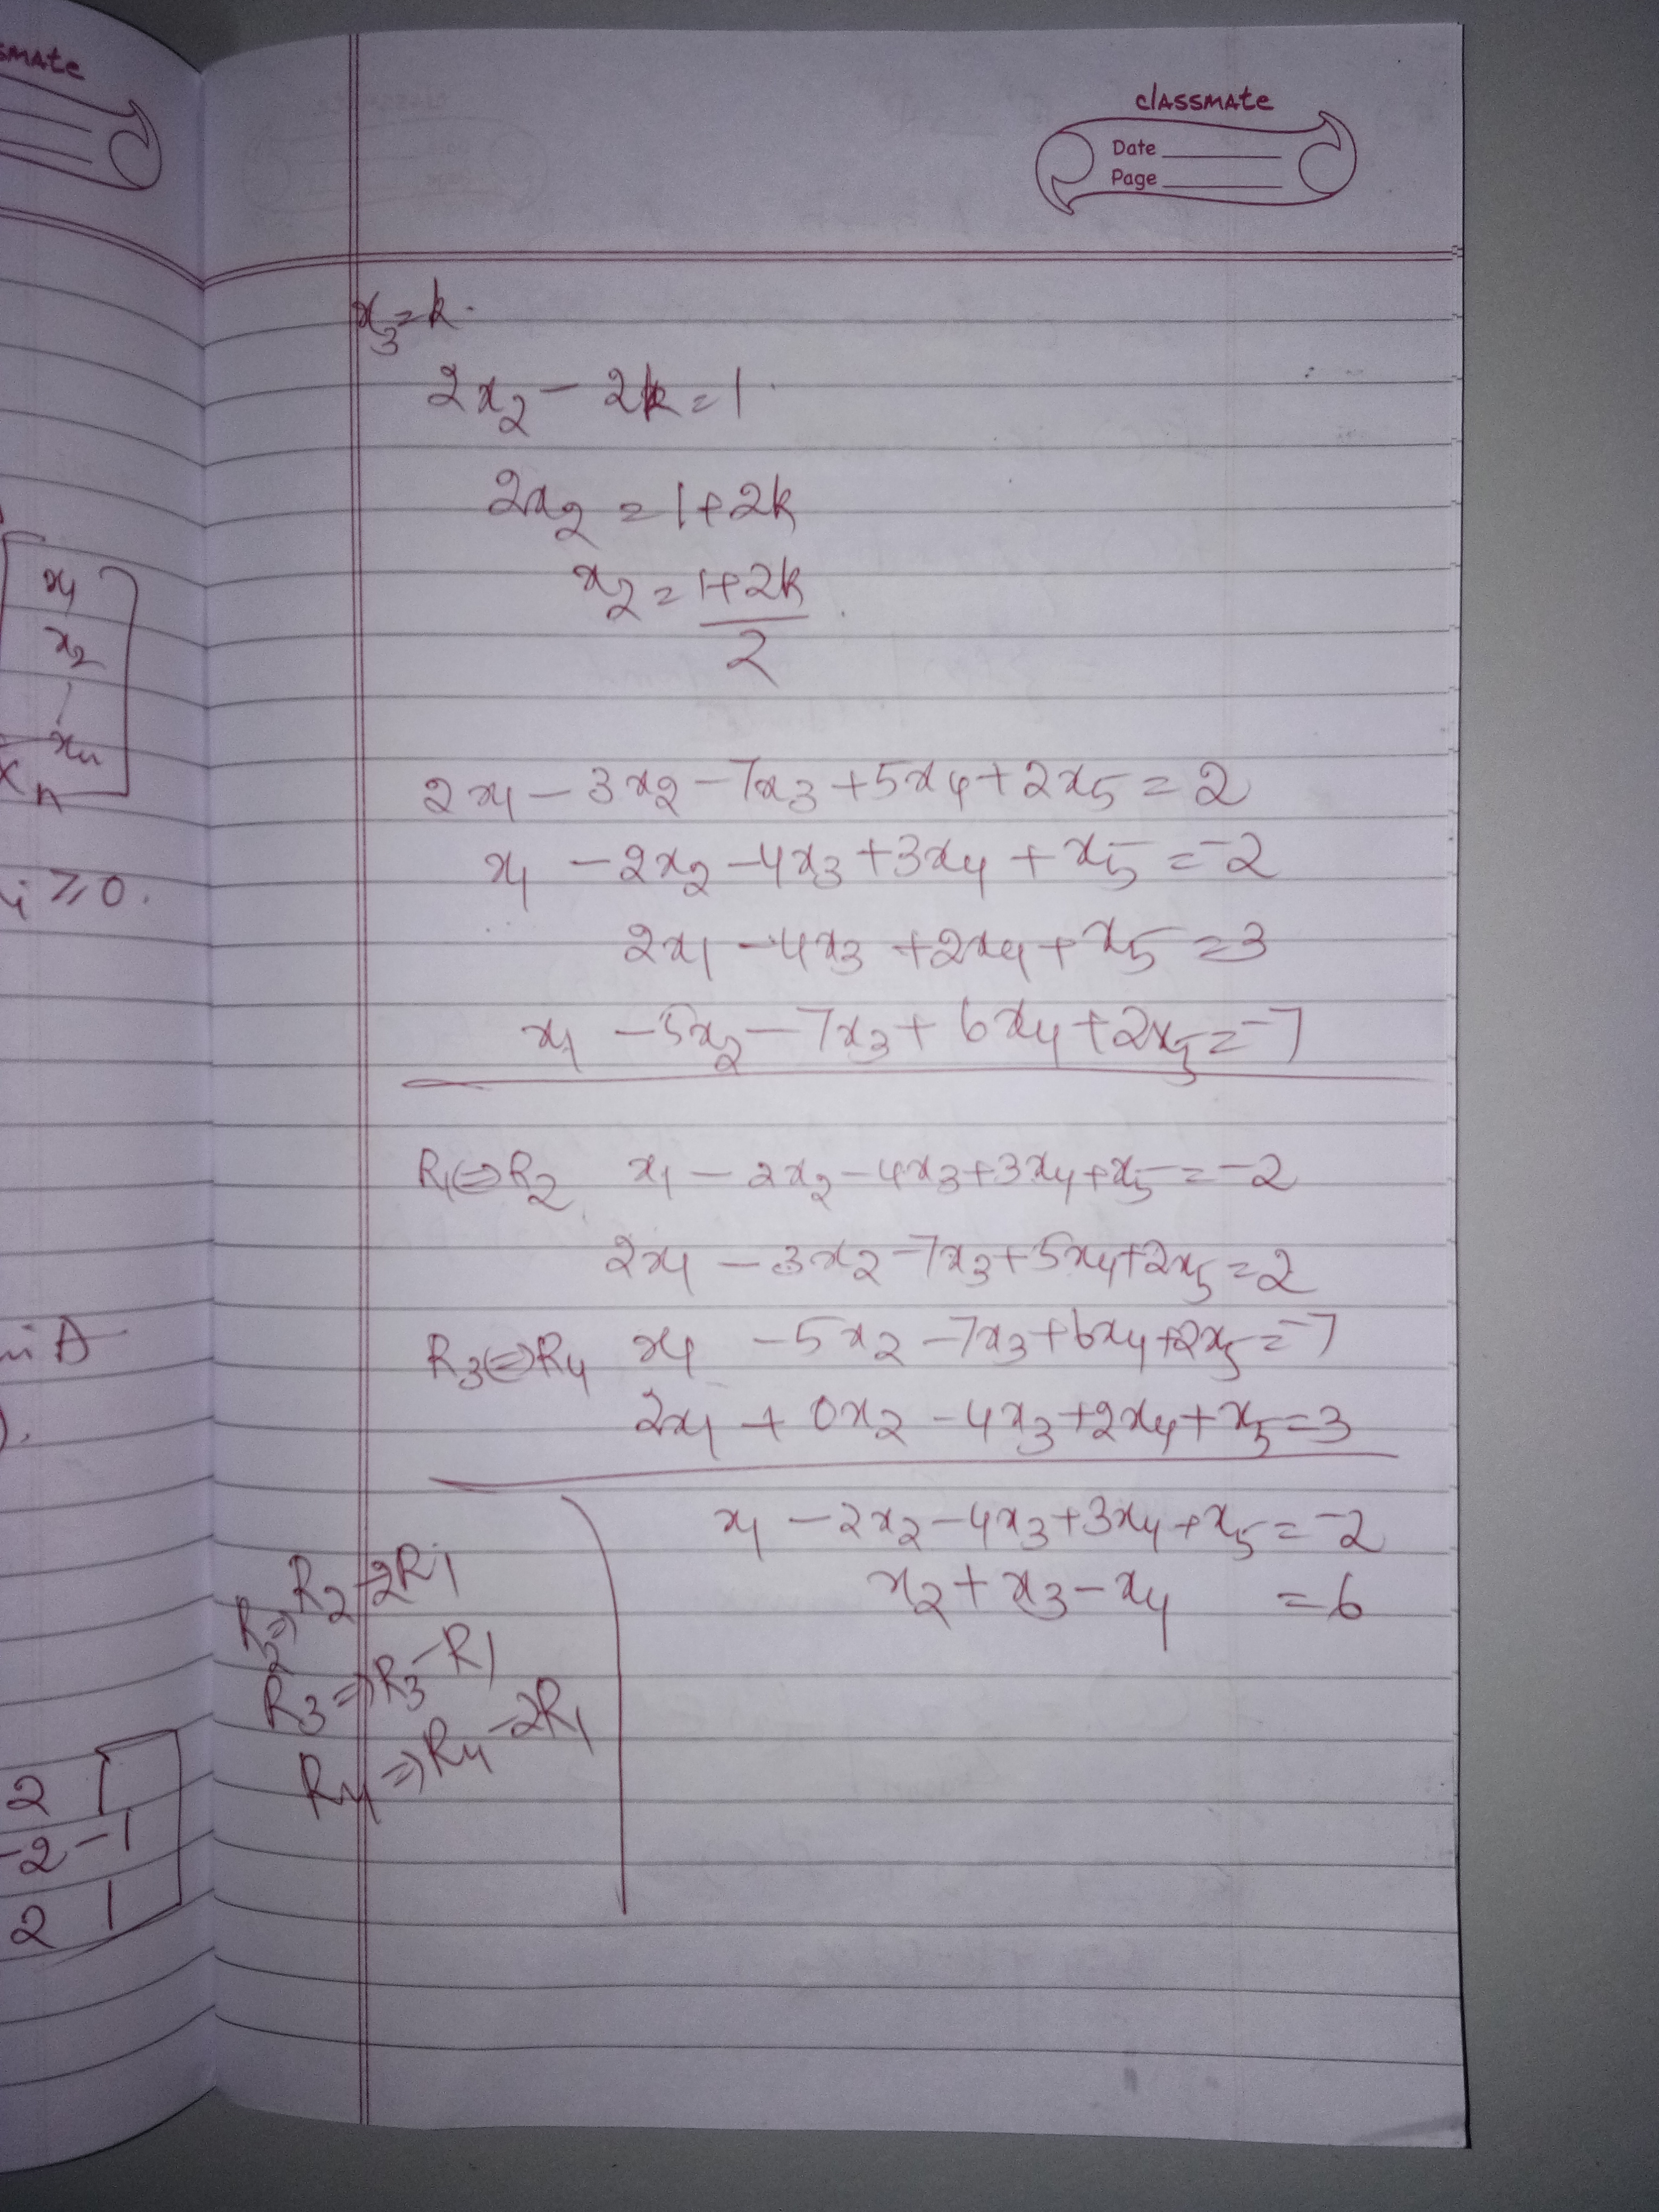 smate
x₁
x₂
xₙ
i ≥ 0.
in A
).
2
-2 -1
2 1
classmate
Date
Page
x₃ = k.
2x₂ - 2k = 1
2x₂ = 1 + 2k
x₂ = (1 + 2k)/2
2x₁ - 3x₂ - 7x₃ + 5x₄ + 2x₅ = 2
x₁ - 2x₂ - 4x₃ + 3x₄ + x₅ = -2
2x₁ - 4x₃ + 2x₄ + x₅ = 3
x₁ - 5x₂ - 7x₃ + 6x₄ + 2x₅ = -7
R₁⇔R₂ x₁ - 2x₂ - 4x₃ + 3x₄ + x₅ = -2
2x₁ - 3x₂ - 7x₃ + 5x₄ + 2x₅ = 2
R₃⇔R₄ x₁ - 5x₂ - 7x₃ + 6x₄ + 2x₅ = -7
2x₁ + 0x₂ - 4x₃ + 2x₄ + x₅ = 3
R₂ ⇒ R₂ - 2R₁
R₃ ⇒ R₃ - R₁
R₄ ⇒ R₄ - 2R₁
x₁ - 2x₂ - 4x₃ + 3x₄ + x₅ = -2
x₂ + x₃ - x₄ = 6